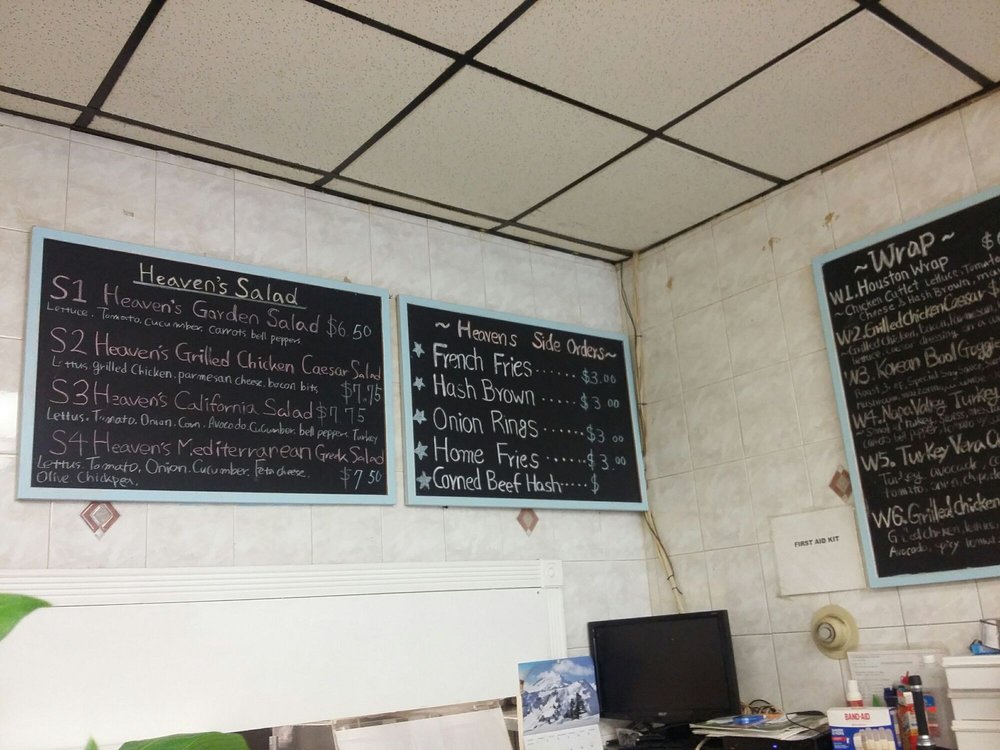 Heaven's Salad
S1 Heaven's Garden Salad $6.50
Lettuce. Tomato, cucumber, carrots, bell peppers
S2 Heaven's Grilled Chicken Caesar Salad
Lettus, grilled Chicken, parmesan cheese, bacon bits $7.75
S3 Heaven's California Salad $7.75
Lettus, Tomato, Onion, Corn, Avocado, Cucumber, bell peppers, Turkey
S4 Heaven's Mediterranean Greek Salad
Lettus, Tomato, Onion, Cucumber, Feta cheese, $7.50
Olive Chickpea,
~ Heaven's Side Orders ~
French Fries ...... $3.00
Hash Brown ...... $3.00
Onion Rings ...... $3.00
Home Fries ...... $3.00
Corned Beef Hash ..... $
~ Wrap ~
W1. Houston Wrap
~ Chicken Cutlet Lettuce, Tomato
Cheese & Hash Brown,
W2. Grilled Chicken Caesar
Grilled Chicken,
lettuce, caesar dressing
W3. Korean Bool Goggi
W4. Napa Valley Turkey
W5. Turkey Vera
Turkey, avocado,
Tomato, onion,
W6. Grilled chicken
Grilled chicken,
Avocado, spicy
FIRST AID KIT
BAND-AID